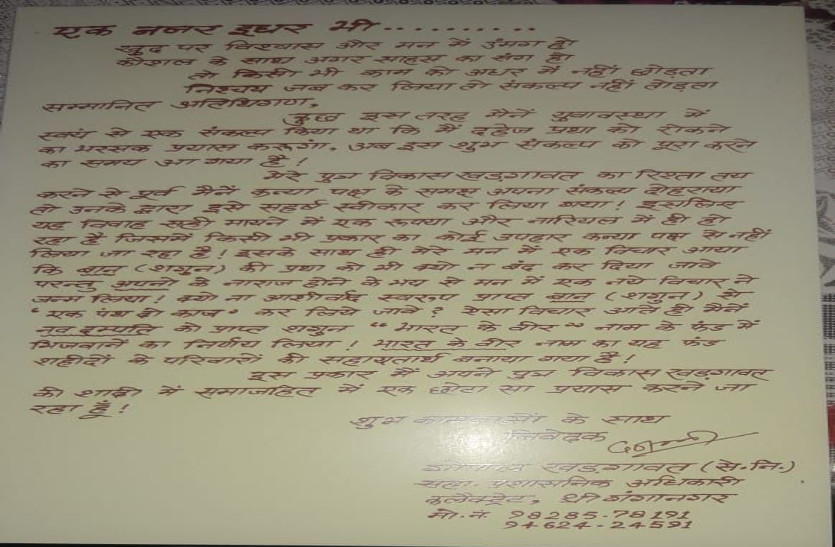 एक नजर इधर भी..........
खुद पर विश्वास और मन में उंमग हो
कौशल के साथ अगर साहस का संग हो
तो किसी भी काम को अधर में नहीं छोड़ता
निश्चय जब कर लिया तो संकल्प नहीं तोड़ता
सम्मानित अतिथिगण,
कुछ इस तरह मैनें युवावस्था में
स्वयं से एक संकल्प किया था कि मैं दहेज प्रथा को रोकने
का भरसक प्रयास करूंगा, अब इस शुभ संकल्प को पूरा करने
का समय आ गया है !
मेरे पुत्र विकास खड़गावत का रिश्ता तय
करने से पूर्व मैनें कन्या पक्ष के समक्ष अपना संकल्प दोहराया
तो उनके द्वारा इसे सहर्ष स्वीकार कर लिया गया ! इसलिए
यह विवाह सही मायने में एक रूपया और नारियल में ही हो
रहा है जिसमें किसी भी प्रकार का कोई उपहार कन्या पक्ष से नहीं
लिया जा रहा है ! इसके साथ ही मेरे मन में एक विचार आया
कि बान (शगुन) की प्रथा को भी क्यो न बंद कर दिया जावे
परन्तु अपनो के नाराज होने के भय से मन में एक नये विचार ने
जन्म लिया ! क्यो ना आशीर्वाद स्वरूप प्राप्त बान (शगुन) से
"एक पंथ दो काज" कर लिये जावे ? ऐसा विचार आते ही मैनें
नव दम्पति को प्राप्त शगुन "भारत के वीर" नाम के फंड में
भिजवाने का निर्णय लिया ! भारत के वीर नाम का यह फंड
शहीदों के परिवारों की सहायतार्थ बनाया गया है !
इस प्रकार मैं अपने पुत्र विकास खड़गावत
की शादी में समाजहित में एक छोटा सा प्रयास करने जा
रहा हूँ !
शुभ कामनाओं के साथ
निवेदक
खड़गावत (से.नि.)
सहा. प्रशासनिक अधिकारी
कलेक्ट्रेट, श्री गंगानगर
मो. नं. 98285-78191
94624-24591